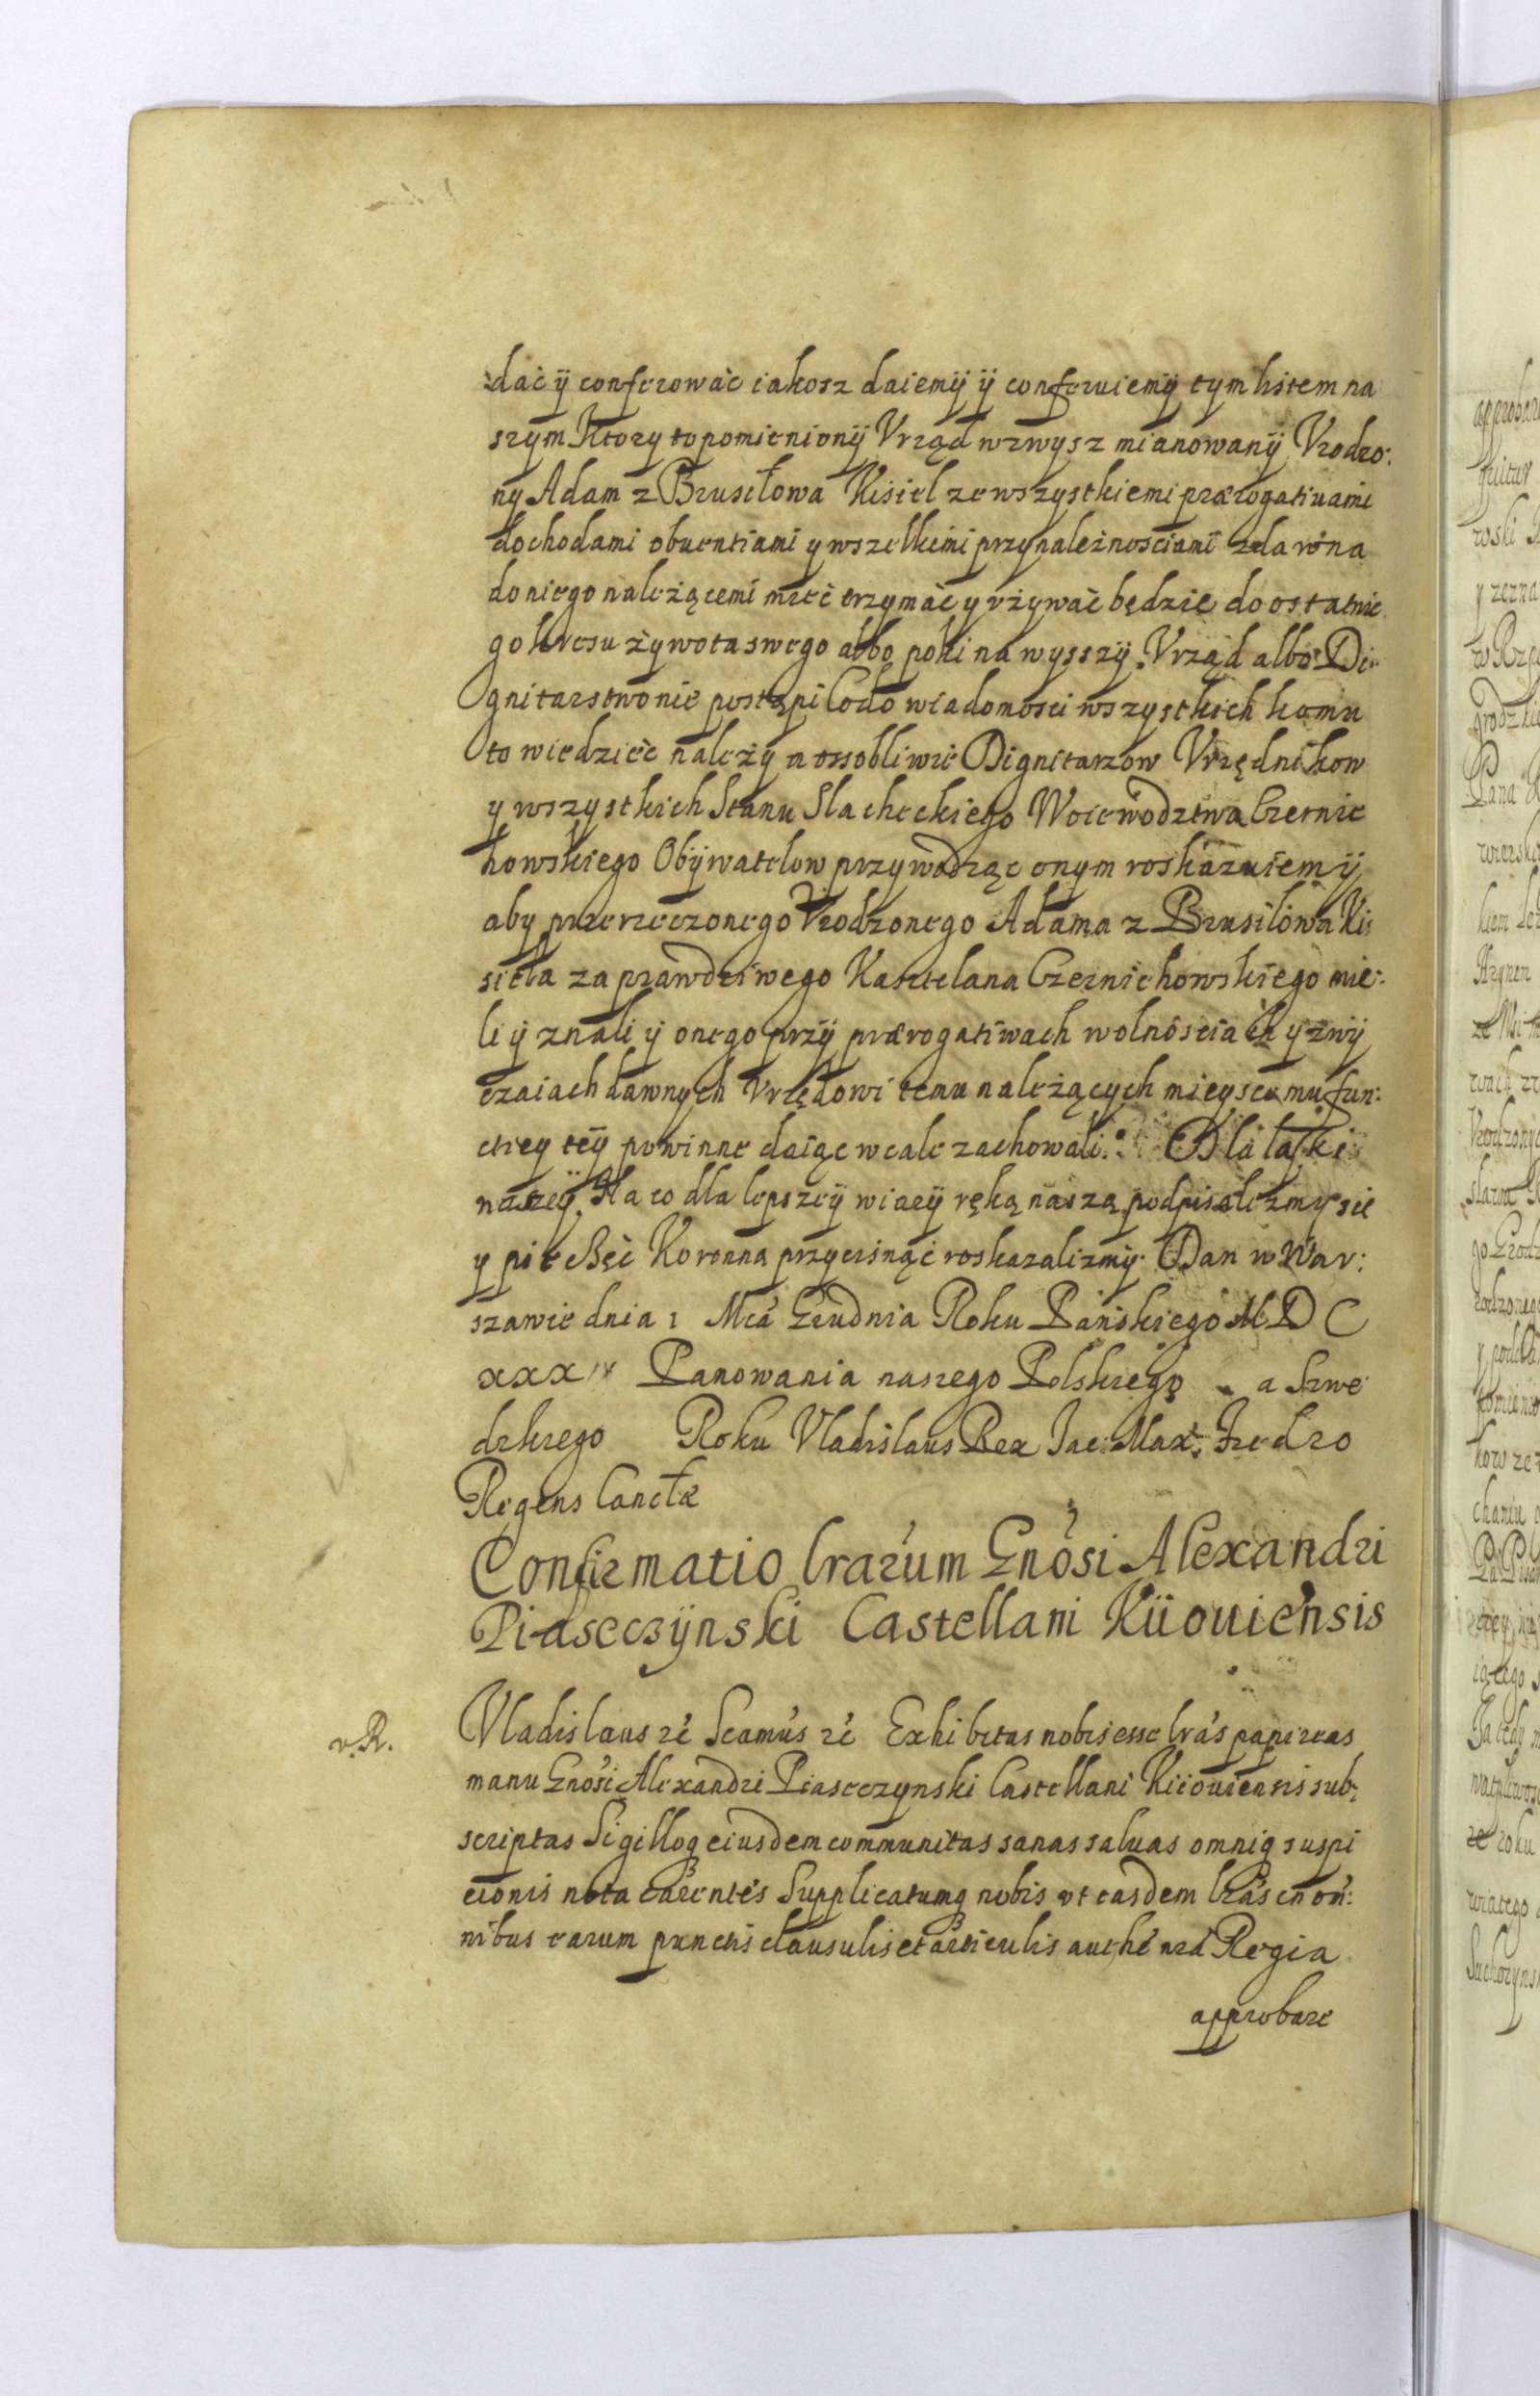 dać ÿ conferować iakosz daiemÿ ÿ conferuiemÿ tym listem na
szym Ktory to pomienionÿ Vrząd wzwysz mianowanÿ Vrodzo:
ny Adam z Brusiłowa Kisiel ze wszystkiemi prærogatiuami
dochodami obuentiami y wszelkiemi przynależnosciami zdawna
do niego należącemi mieć trzymać y vżywać będzie do ostatnie
go kresu żywota swego albo poki na wysszÿ Vrząd albo Di-
gnitarstwo nie postąpi Co do wiadomosci wszystkich komu
to wiedzieć należy a ossobliwie Dignitarzow Vrzędnikow
y wszystkich Stanu Slacheckiego Woiewodztwa Czernie
howskiego Obÿwatelow przywodząc onym roskazuiemÿ
aby przerzeczonego Vrodzonego Adama z Brusilowa Ki:
siela za prawdziwego Kasztelana Czernichowskiego mie:
li ÿ znali ÿ onego przÿ prærogatiwach wolnościach y zwÿ
czaiach dawnych Vrzędowi temu należących mieysce mu fun:
ctiey teÿ powinne daiąc wcale zachowali. Dla łaski
naszeÿ. Na co dla lepszeÿ wiarÿ ręką naszą podpisalizmy sie
y pieczęć Koronna przycisnąć roskazalizmÿ. Dan w War:
szawie dnia 1 Mcá Grudnia Roku Pańskiego M D C
xxx Panowania naszego Polskiego a Szwe
dzkiego Roku Vladislaus Rex Jac: Max: Fredro
Regens Canctæ
Confirmatio lrarum Gnosi Alexandri
Piaseczÿnski Castellani Kiiouiensis
v. R.
Vladislaus rc Seamus rc Exhibitas nobis esse lras papireas
manu Gnosi Alexandri Piaseczynski Castellani Kiiouiensis sub:
scriptas Sigilloq eiusdem communitas sanas saluas omniq suspi
cionis nota carentes Supplicatumq nobis vt easdem lras in om:
nibus earum punctis clausulis et articulis authe nra Regia
approbare